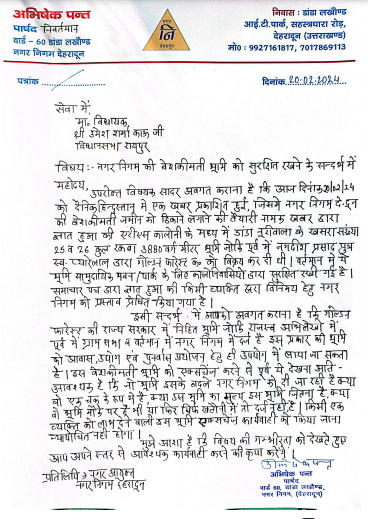 अभिषेक पन्त
पार्षद निवर्तमान
वार्ड - 60 डांडा लखौण्ड
नगर निगम देहरादून
नगर
नि
देहरादून
निवास : डांडा लखौण्ड
आई.टी.पार्क, सहस्त्रधारा रोड़,
देहरादून (उत्तराखण्ड)
मो० : 9927161817, 7017869113
पत्रांक
दिनांक 20-02-2024
सेवा में,
मा० विधायक,
श्री उमेश शर्मा काऊ जी
विधानसभा रायपुर
विषय:- नगर निगम की बेशकीमती भूमि को सुरक्षित रखने के सन्दर्भ में
महोदय,
उपरोक्त विषयक सादर अवगत कराना है कि आज दिनांक 20/02/24
को दैनिक हिन्दुस्तान में एक खबर प्रकाशित हुई, जिसमें नगर निगम दे०दून
की बेशकीमती जमीन को ठिकाने लगाने की तैयारी नामक खबर द्वारा
ज्ञात हुआ की एटीएस कालोनी के मध्य में डांडा नूरीवाला के खसरा संख्या
25 व 26 कुल रकबा 3880 वर्ग मीटर भूमि जोकि पूर्व में जगदीश प्रसाद पुत्र
स्व० प्यारेलाल द्वारा गोल्डन फारेस्ट क० को विक्रय कर दी थी। वर्तमान में ये
भूमि सामुदायिक भवन/पार्क के लिए कालोनिवासियों द्वारा सुरक्षित रखी गई है।
समाचार पत्र द्वारा ज्ञात हुआ की किसी व्यक्ति द्वारा विनिमय हेतु नगर
निगम को प्रस्ताव प्रेषित किया गया है।
इसी सन्दर्भ में आपको अवगत कराना है कि गोल्डन
फारेस्ट की राज्य सरकार में निहित भूमि जोकि राजस्व अभिलेखों में
पूर्व में ग्राम सभा व वर्तमान में नगर निगम में दर्ज है इस प्रकार की भूमि
को आवास, उद्योग एवं पुनर्वास प्रयोजन हेतु ही उपयोग में लाया जा सकता
है। इस बेशकीमती भूमि को एक्सचेंज करने से पूर्व ये देखना अति-
आवश्यक है कि जो भूमि इसके बदले नगर निगम को दी जा रही है क्या
वो एक चक के रूप में है, क्या उस भूमि का मूल्य इस भूमि जितना है, क्या
वो भूमि मौके पर है भी या फिर सिर्फ खतौनी में तो दर्ज नहीं है। किसी एक
व्यक्ति को लाभ देने वाली इस भूमि एक्सचेंज कार्यवाही को किया जाना
न्यायोचित नहीं होगा।
मुझे आशा है कि विषय की गम्भीरता को देखते हुए
आप अपने स्तर से आवश्यक कार्यवाही करने की कृपा करेंगे।
प्रतिलिपि:- नगर आयुक्त
नगर निगम देहरादून
अभिषेक पन्त
पार्षद
वार्ड 60, डांडा लखौण्ड,
नगर निगम, (देहरादून)